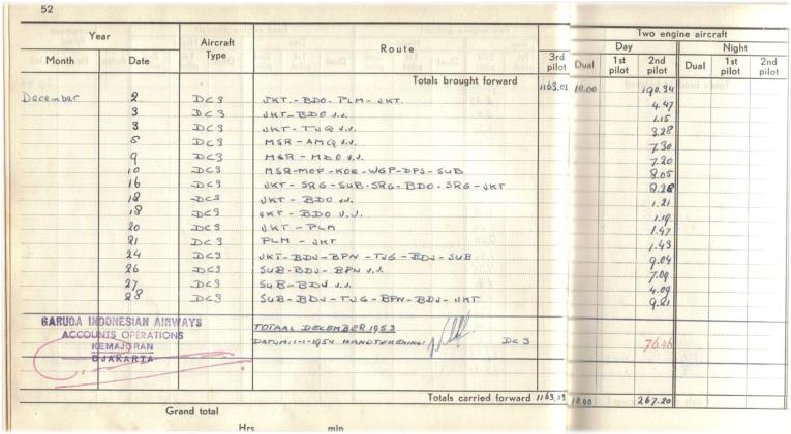 52
Year
Aircraft Type
Route
3rd pilot
Two engine aircraft
Day
Night
Month
Date
Dual
1st pilot
2nd pilot
Dual
1st pilot
2nd pilot
Totals brought forward 1163.03 10.00 190.34
December 2 DC3 JKT.-BDO-PLM-JKT. 4.47
3 DC3 JKT-BDO v.v. 1.15
3 DC3 JKT-TJQ v.v. 3.28
5 DC3 MSR-AMQ v.v. 7.30
9 DC3 MSR-MDO v.v. 7.20
10 DC3 MSR-MOF-KOE-WGP-DPS-SUB 8.05
16 DC3 JKT-SRG-SUB-SRG-BDO-SRG-JKT 8.28
18 DC3 JKT-BDO v.v. 1.21
18 DC3 JKT-BDO v.v. 1.19
20 DC3 JKT-PLM 1.47
21 DC3 PLM-JKT 1.43
24 DC3 JKT-BDJ-BPN-TJG-BDJ-SUB 9.04
26 DC3 SUB-BDJ-BPN v.v. 7.09
27 DC3 SUB-BDJ v.v. 4.09
28 DC3 SUB-BDJ-TJG-BPN-BDJ-JKT 9.21
GARUDA INDONESIAN AIRWAYS
ACCOUNTS OPERATIONS
KEMAJORAN
DJAKARTA
TOTAAL DECEMBER 1953
DATUM: 1-1-1954 HANDTEKENING: DC3 76.46
Totals carried forward 1163.03 10.00 267.20
Grand total
Hrs min